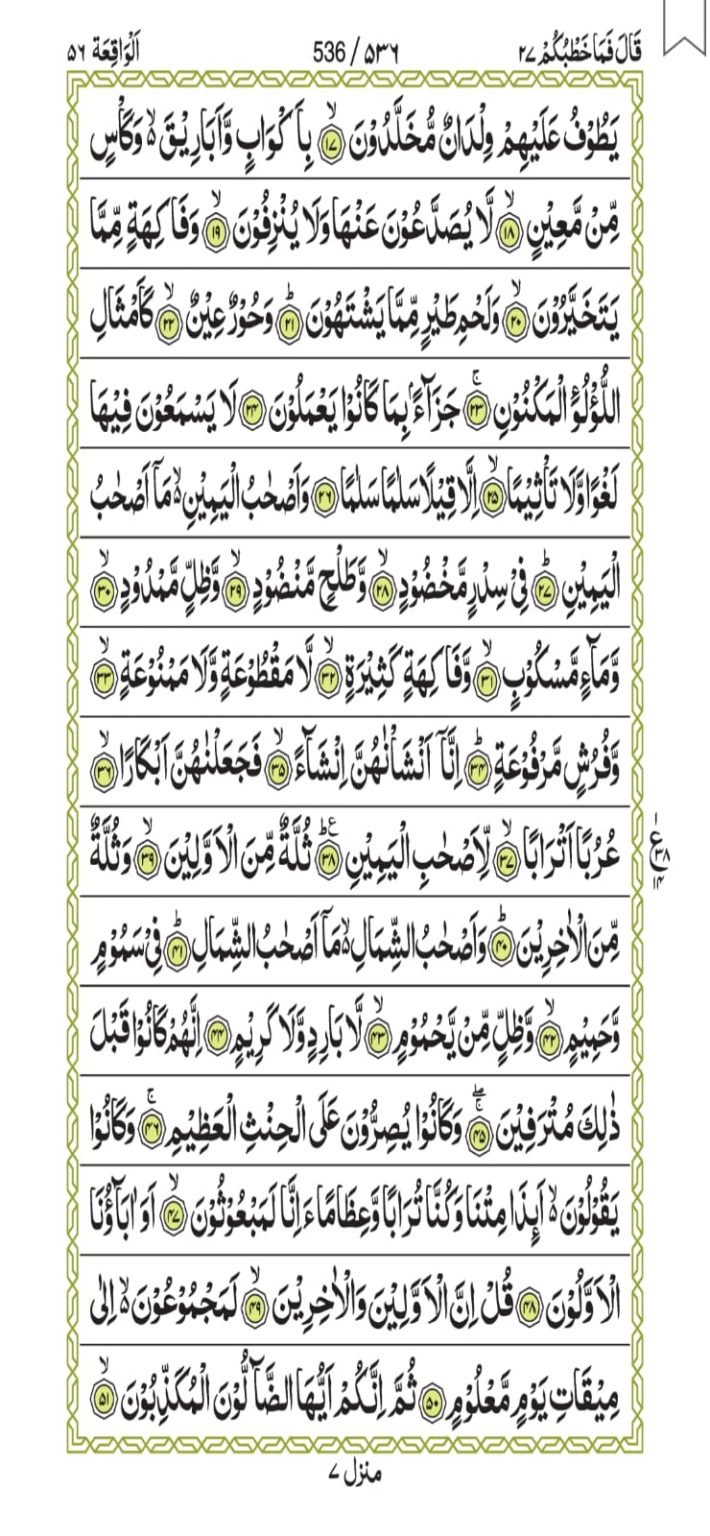 قَالَ فَمَا خَطْبُكُمْ ٢٧ 536 / ۵۳۶ اَلْوَاقِعَة ۵۶
يَطُوْفُ عَلَيْهِمْ وِلْدَانٌ مُّخَلَّدُوْنَ ۙ‏﴿۱۷﴾ بِاَكْوَابٍ وَّاَبَارِيْقَ ۙ وَكَاْسٍ
مِّنْ مَّعِيْنٍ ۙ‏﴿۱۸﴾ لَّا يُصَدَّعُوْنَ عَنْهَا وَلَا يُنْزِفُوْنَ ۙ‏﴿۱۹﴾ وَفَاكِهَةٍ مِّمَّا
يَتَخَيَّرُوْنَ ۙ‏﴿۲۰﴾ وَلَحْمِ طَيْرٍ مِّمَّا يَشْتَهُوْنَ ؕ‏﴿۲۱﴾ وَحُوْرٌ عِيْنٌ ۙ‏﴿۲۲﴾ كَاَمْثَالِ
اللُّؤْلُؤِ الْمَكْنُوْنِ ۚ‏﴿۲۳﴾ جَزَآءًۢ بِمَا كَانُوْا يَعْمَلُوْنَ ﴿۲۴﴾ لَا يَسْمَعُوْنَ فِيْهَا
لَغْوًا وَّلَا تَاْثِيْمًا ۙ‏﴿۲۵﴾ اِلَّا قِيْلًا سَلٰمًا سَلٰمًا ﴿۲۶﴾ وَاَصْحٰبُ الْيَمِيْنِ ۙ مَاۤ اَصْحٰبُ
الْيَمِيْنِ ؕ‏﴿۲۷﴾ فِيْ سِدْرٍ مَّخْضُوْدٍ ۙ‏﴿۲۸﴾ وَّطَلْحٍ مَّنْضُوْدٍ ۙ‏﴿۲۹﴾ وَّظِلٍّ مَّمْدُوْدٍ ۙ‏﴿۳۰﴾
وَّمَآءٍ مَّسْكُوْبٍ ۙ‏﴿۳۱﴾ وَّفَاكِهَةٍ كَثِيْرَةٍ ۙ‏﴿۳۲﴾ لَّا مَقْطُوْعَةٍ وَّلَا مَمْنُوْعَةٍ ۙ‏﴿۳۳﴾
وَّفُرُشٍ مَّرْفُوْعَةٍ ؕ‏﴿۳۴﴾ اِنَّاۤ اَنْشَاْنٰهُنَّ اِنْشَآءً ۙ‏﴿۳۵﴾ فَجَعَلْنٰهُنَّ اَبْكَارًا ۙ‏﴿۳۶﴾
عُرُبًا اَتْرَابًا ۙ‏﴿۳۷﴾ لِّاَصْحٰبِ الْيَمِيْنِ ؕ‏﴿۳۸﴾ ثُلَّةٌ مِّنَ الْاَوَّلِيْنَ ۙ‏﴿۳۹﴾ وَثُلَّةٌ
۱ ع ۳۸ ۱۴
مِّنَ الْاٰخِرِيْنَ ؕ‏﴿۴۰﴾ وَاَصْحٰبُ الشِّمَالِ ۙ مَاۤ اَصْحٰبُ الشِّمَالِ ؕ‏﴿۴۱﴾ فِيْ سَمُوْمٍ
وَّحَمِيْمٍ ۙ‏﴿۴۲﴾ وَّظِلٍّ مِّنْ يَّحْمُوْمٍ ۙ‏﴿۴۳﴾ لَّا بَارِدٍ وَّلَا كَرِيْمٍ ﴿۴۴﴾ اِنَّهُمْ كَانُوْا قَبْلَ
ذٰلِكَ مُتْرَفِيْنَ ۚۖ‏﴿۴۵﴾ وَكَانُوْا يُصِرُّوْنَ عَلَى الْحِنْثِ الْعَظِيْمِ ۚ‏﴿۴۶﴾ وَكَانُوْا
يَقُوْلُوْنَ ۙ اَىِٕذَا مِتْنَا وَكُنَّا تُرَابًا وَّعِظَامًا ءَاِنَّا لَمَبْعُوْثُوْنَ ۙ‏﴿۴۷﴾ اَوَاٰبَآؤُنَا
الْاَوَّلُوْنَ ﴿۴۸﴾ قُلْ اِنَّ الْاَوَّلِيْنَ وَالْاٰخِرِيْنَ ۙ‏﴿۴۹﴾ لَمَجْمُوْعُوْنَ ۙ اِلٰى
مِيْقَاتِ يَوْمٍ مَّعْلُوْمٍ ﴿۵۰﴾ ثُمَّ اِنَّكُمْ اَيُّهَا الضَّآلُّوْنَ الْمُكَذِّبُوْنَ ۙ‏﴿۵۱﴾
منزل ٧